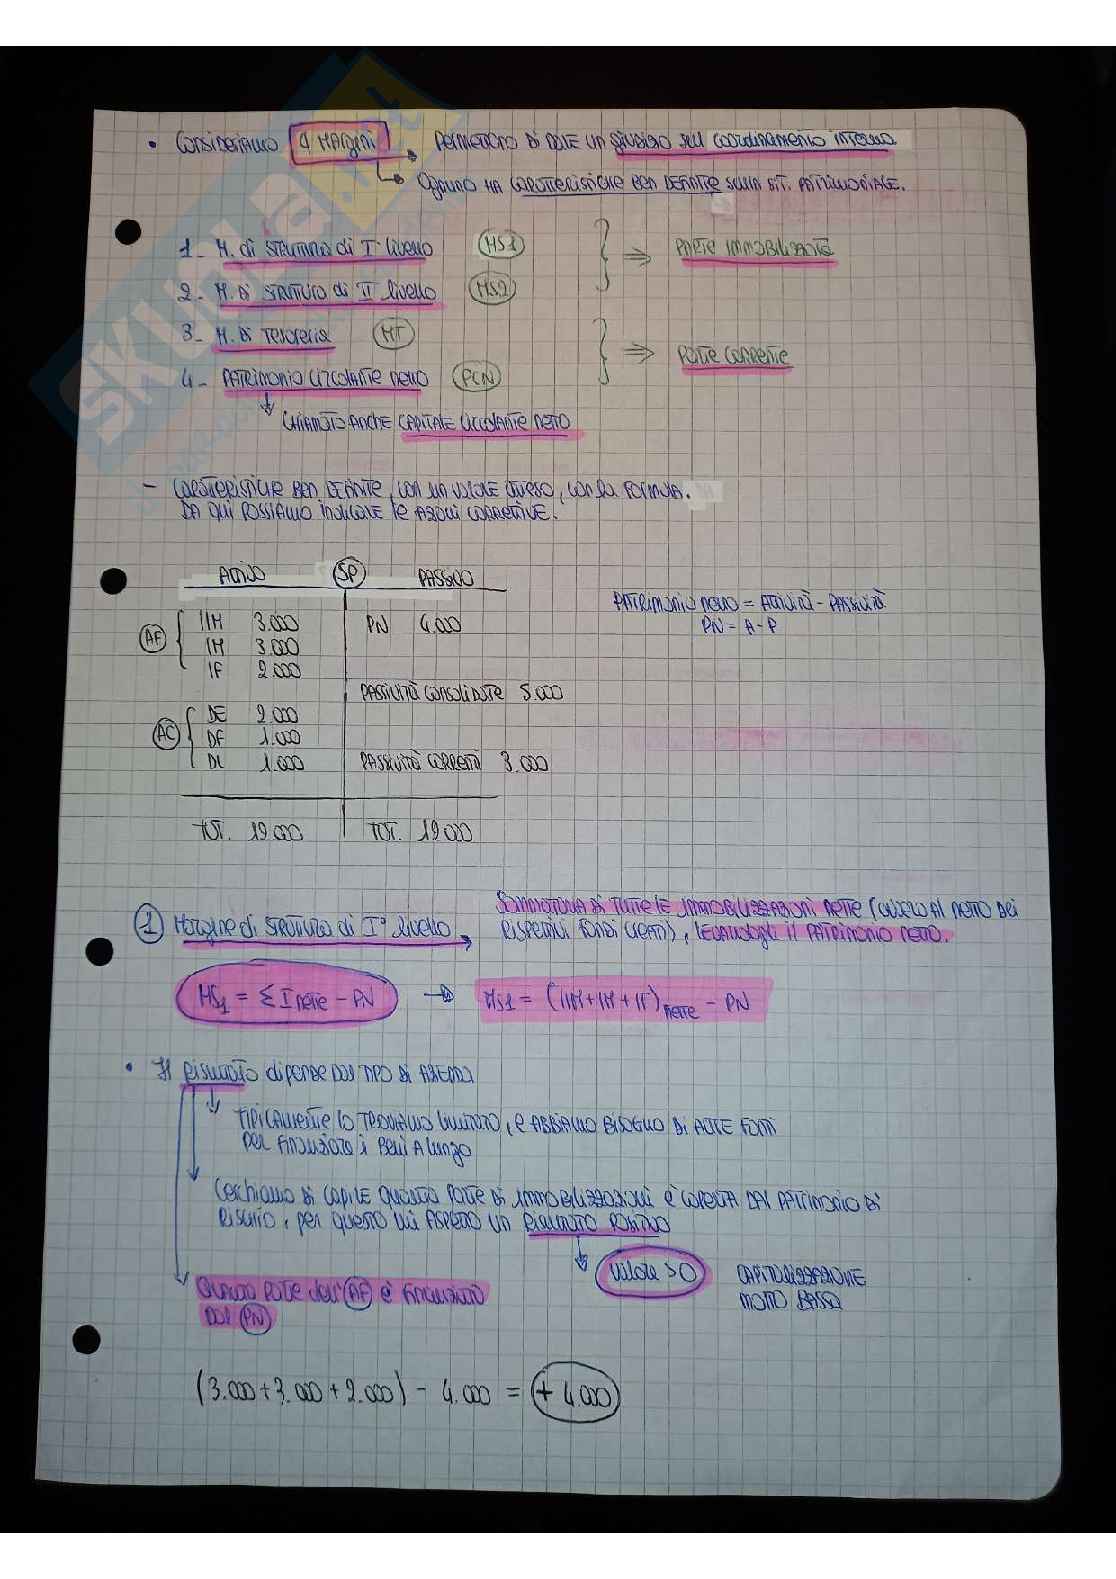 • Consideriamo 4 MARGINI → PERMETTONO DI DARE UN GIUDIZIO SUL COORDINAMENTO INTERNO
→ OGNUNO HA CARATTERISTICHE BEN DEFINITE SULLA SIT. PATRIMONIALE.
1- M. di STRUTTURA di I° livello MS1 ⇒ PARTE IMMOBILIZZATA
2- M. DI STRUTTURA di II° livello MS2
3- M. DI TESORERIA MT
⇒ PARTE CORRENTE
4- PATRIMONIO CIRCOLANTE NETTO PCN
↓ CHIAMATO ANCHE CAPITALE CIRCOLANTE NETTO
- CARATTERISTICHE BEN DEFINITE, CON UN VALORE DIVERSO, CON SUA FORMULA.
DA QUI POSSIAMO INDICARE le AZIONI CORRETTIVE.
ATTIVO SP PASSIVO
PATRIMONIO NETTO = ATTIVITÀ - PASSIVITÀ
IIM 3.000 PN 4.000
PN = A - P
AF IM 3.000
IF 2.000
PASSIVITÀ CONSOLIDATE 5.000
DE 2.000
AC DF 1.000
DL 1.000 PASSIVITÀ CORRENTI 3.000
TOT. 12.000 TOT. 12.000
SOMMATORIA DI TUTTE LE IMMOBILIZZAZIONI NETTE (QUELLO AL NETTO DEI
1 Margine di STRUTTURA di I° livello → RISPETTIVI FONDI), il PATRIMONIO NETTO.
MS1 = Σ I nette - PN → MS1 = (IIM + IM + IF) nette - PN
• Il RISULTATO dipende DAL TIPO DI AZIENDA
TIPICAMENTE lo TROVIAMO, e ABBIAMO BISOGNO DI ALTRE FONTI
per FINANZIARE i BENI A lungo
Cerchiamo DI CAPIRE QUANTA PARTE DI IMMOBILIZZAZIONI è COPERTA DAL PATRIMONIO DI
RISCHIO, per questo mi ASPETTO UN RISULTATO POSITIVO
valore > 0 CAPITALIZZAZIONE
MOLTO BASSA
QUANTA PARTE dell' AF è FINANZIATA
DAL PN
(3.000 + 3.000 + 2.000) - 4.000 = + 4.000